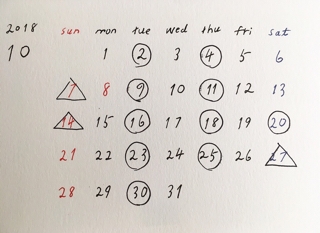 2018 sun mon tue wed thu fri sat
10 1 2 3 4 5 6
7 8 9 10 11 12 13
14 15 16 17 18 19 20
21 22 23 24 25 26 27
28 29 30 31